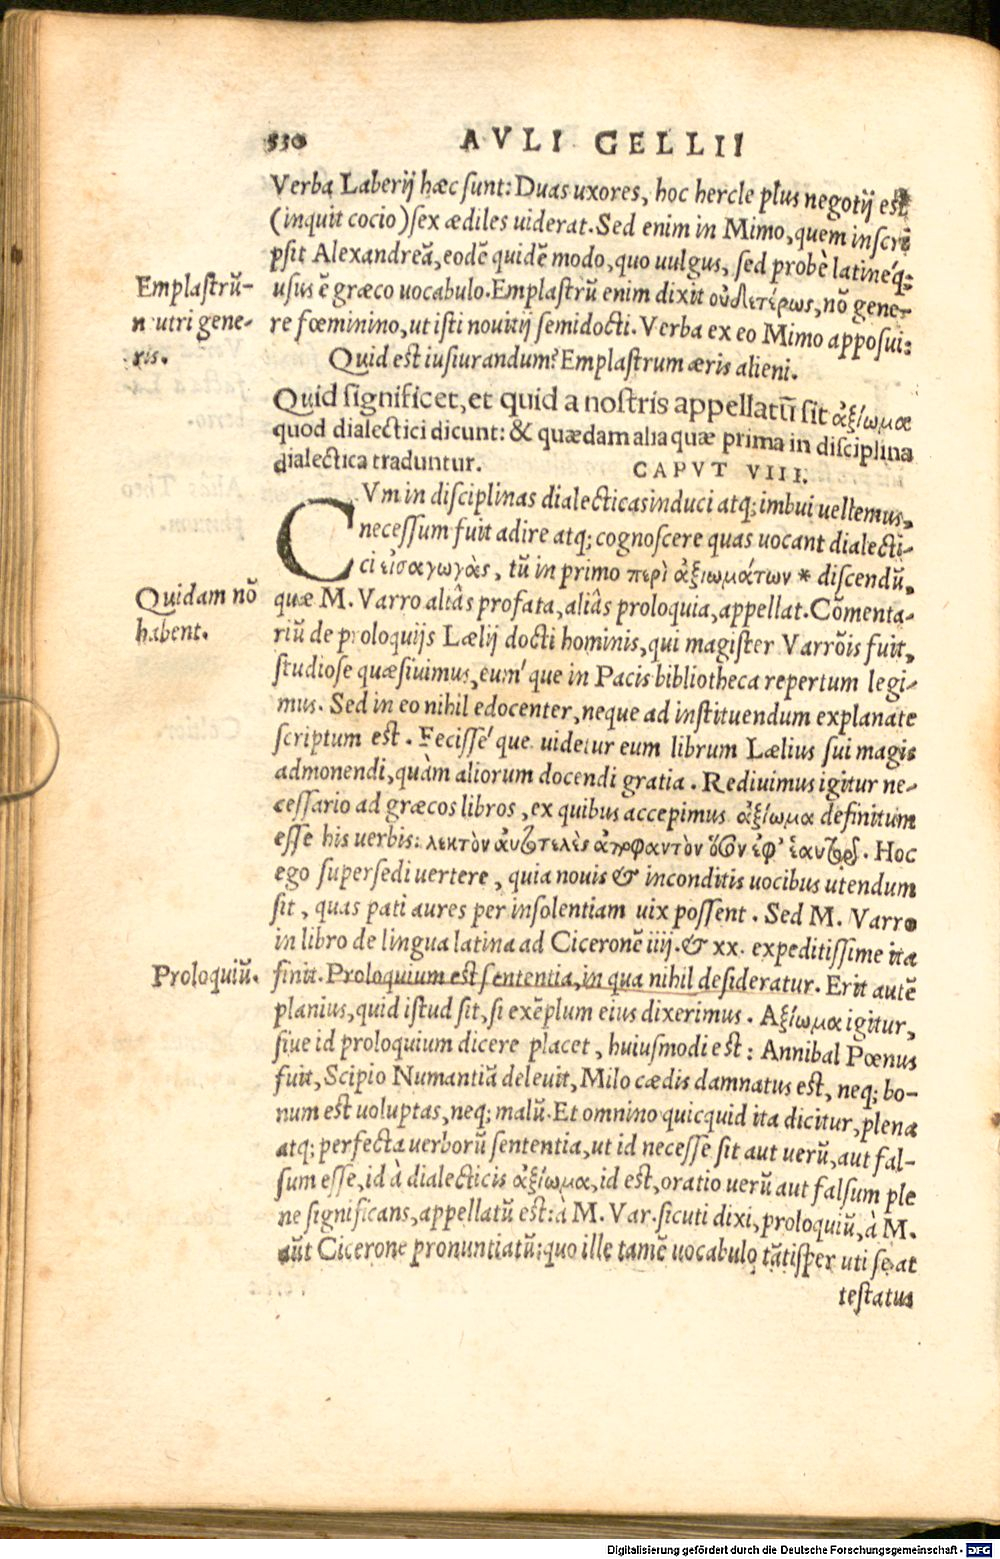 530 AVLI GELLII
Verba Laberij hæc sunt: Duas uxores, hoc hercle plus negotij est
(inquit cocio) sex ædiles uiderat. Sed enim in Mimo, quem inscrı̄
psit Alexandreā, eodē quidē modo, quo uulgus, sed probè latineq́;
usus ē græco uocabulo. Emplastrū enim dixit οὐδετέρως, nō gene-
re fœminino, ut isti nouitij semidocti. Verba ex eo Mimo apposui:
Emplastrū-
n utri gene-
ris.
Quid est iusiurandum? Emplastrum æris alieni.
Quid significet, et quid a nostris appellatū sit ἀξίωμα
quod dialectici dicunt: & quædam alia quæ prima in disciplina
dialectica traduntur. CAPVT VIII.
CVm in disciplinas dialecticas induci atq; imbui uellemus,
necessum fuit adire atq; cognoscere quas uocant dialecti-
ci εἰσαγωγὰς, tū in primo περὶ ἀξιωμάτων * discendū,
quæ M. Varro aliâs profata, aliâs proloquia, appellat. Cōmenta-
Quidam nō
habent.
riū de proloquijs Lælij docti hominis, qui magister Varrōis fuit,
studiose quæsiuimus, eum´ que in Pacis bibliotheca repertum legi-
mus. Sed in eo nihil edocenter, neque ad instituendum explanate
scriptum est. Fecisse´ que uidetur eum librum Lælius sui magis
admonendi, quàm aliorum docendi gratia. Rediuimus igitur ne-
cessario ad græcos libros, ex quibus accepimus ἀξίωμα definitum
esse his uerbis: λεκτὸν αὐτοτελὲς ἀπόφαντὸν ὅσον ἐφ' ἑαυτῷ. Hoc
ego supersedi uertere, quia nouis & inconditis uocibus utendum
sit, quas pati aures per insolentiam uix possent. Sed M. Varro
in libro de lingua latina ad Ciceronē iiij. & xx. expeditissime ita
Proloquiū.
finit. Proloquium est sententia, in qua nihil desideratur. Erit autē
planius, quid istud sit, si exēplum eius dixerimus. Αξίωμα igitur,
siue id proloquium dicere placet, huiusmodi est: Annibal Pœnus
fuit, Scipio Numantiā deleuit, Milo cædis damnatus est, neq; bo-
num est uoluptas, neq; malū. Et omnino quicquid ita dicitur, plena
atq; perfecta uerborū sententia, ut id necesse sit aut uerū, aut fal-
sum esse, id à dialecticis ἀξίωμα, id est, oratio uerū aut falsum ple
ne significans, appellatū est: à M. Var. sicuti dixi, proloquiū, à M.
aūt Cicerone pronuntiatū: quo ille tamē uocabulo tātisper uti se at
testatus
Digitalisierung gefördert durch die Deutsche Forschungsgemeinschaft - DFG